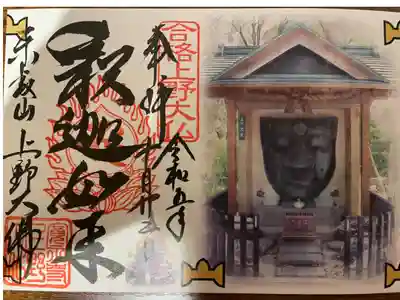 合格上野大仏
奉拝
令和五年
十一月廿五日
釈迦如来
東叡山 上野大佛